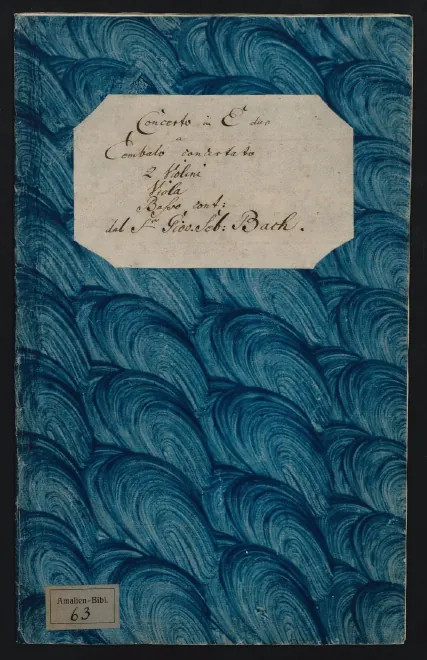 Concerto in E dur
a
Cembalo concertato
2 Violini
Viola
Basso cont:
dal Sr Giov. Seb: Bach.
Amalien-Bibl.
63